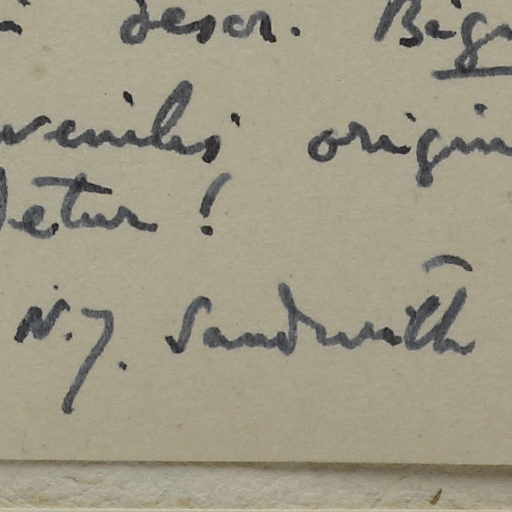 descr. Bign
venilis origin
detur!
N.Y. Sandwith